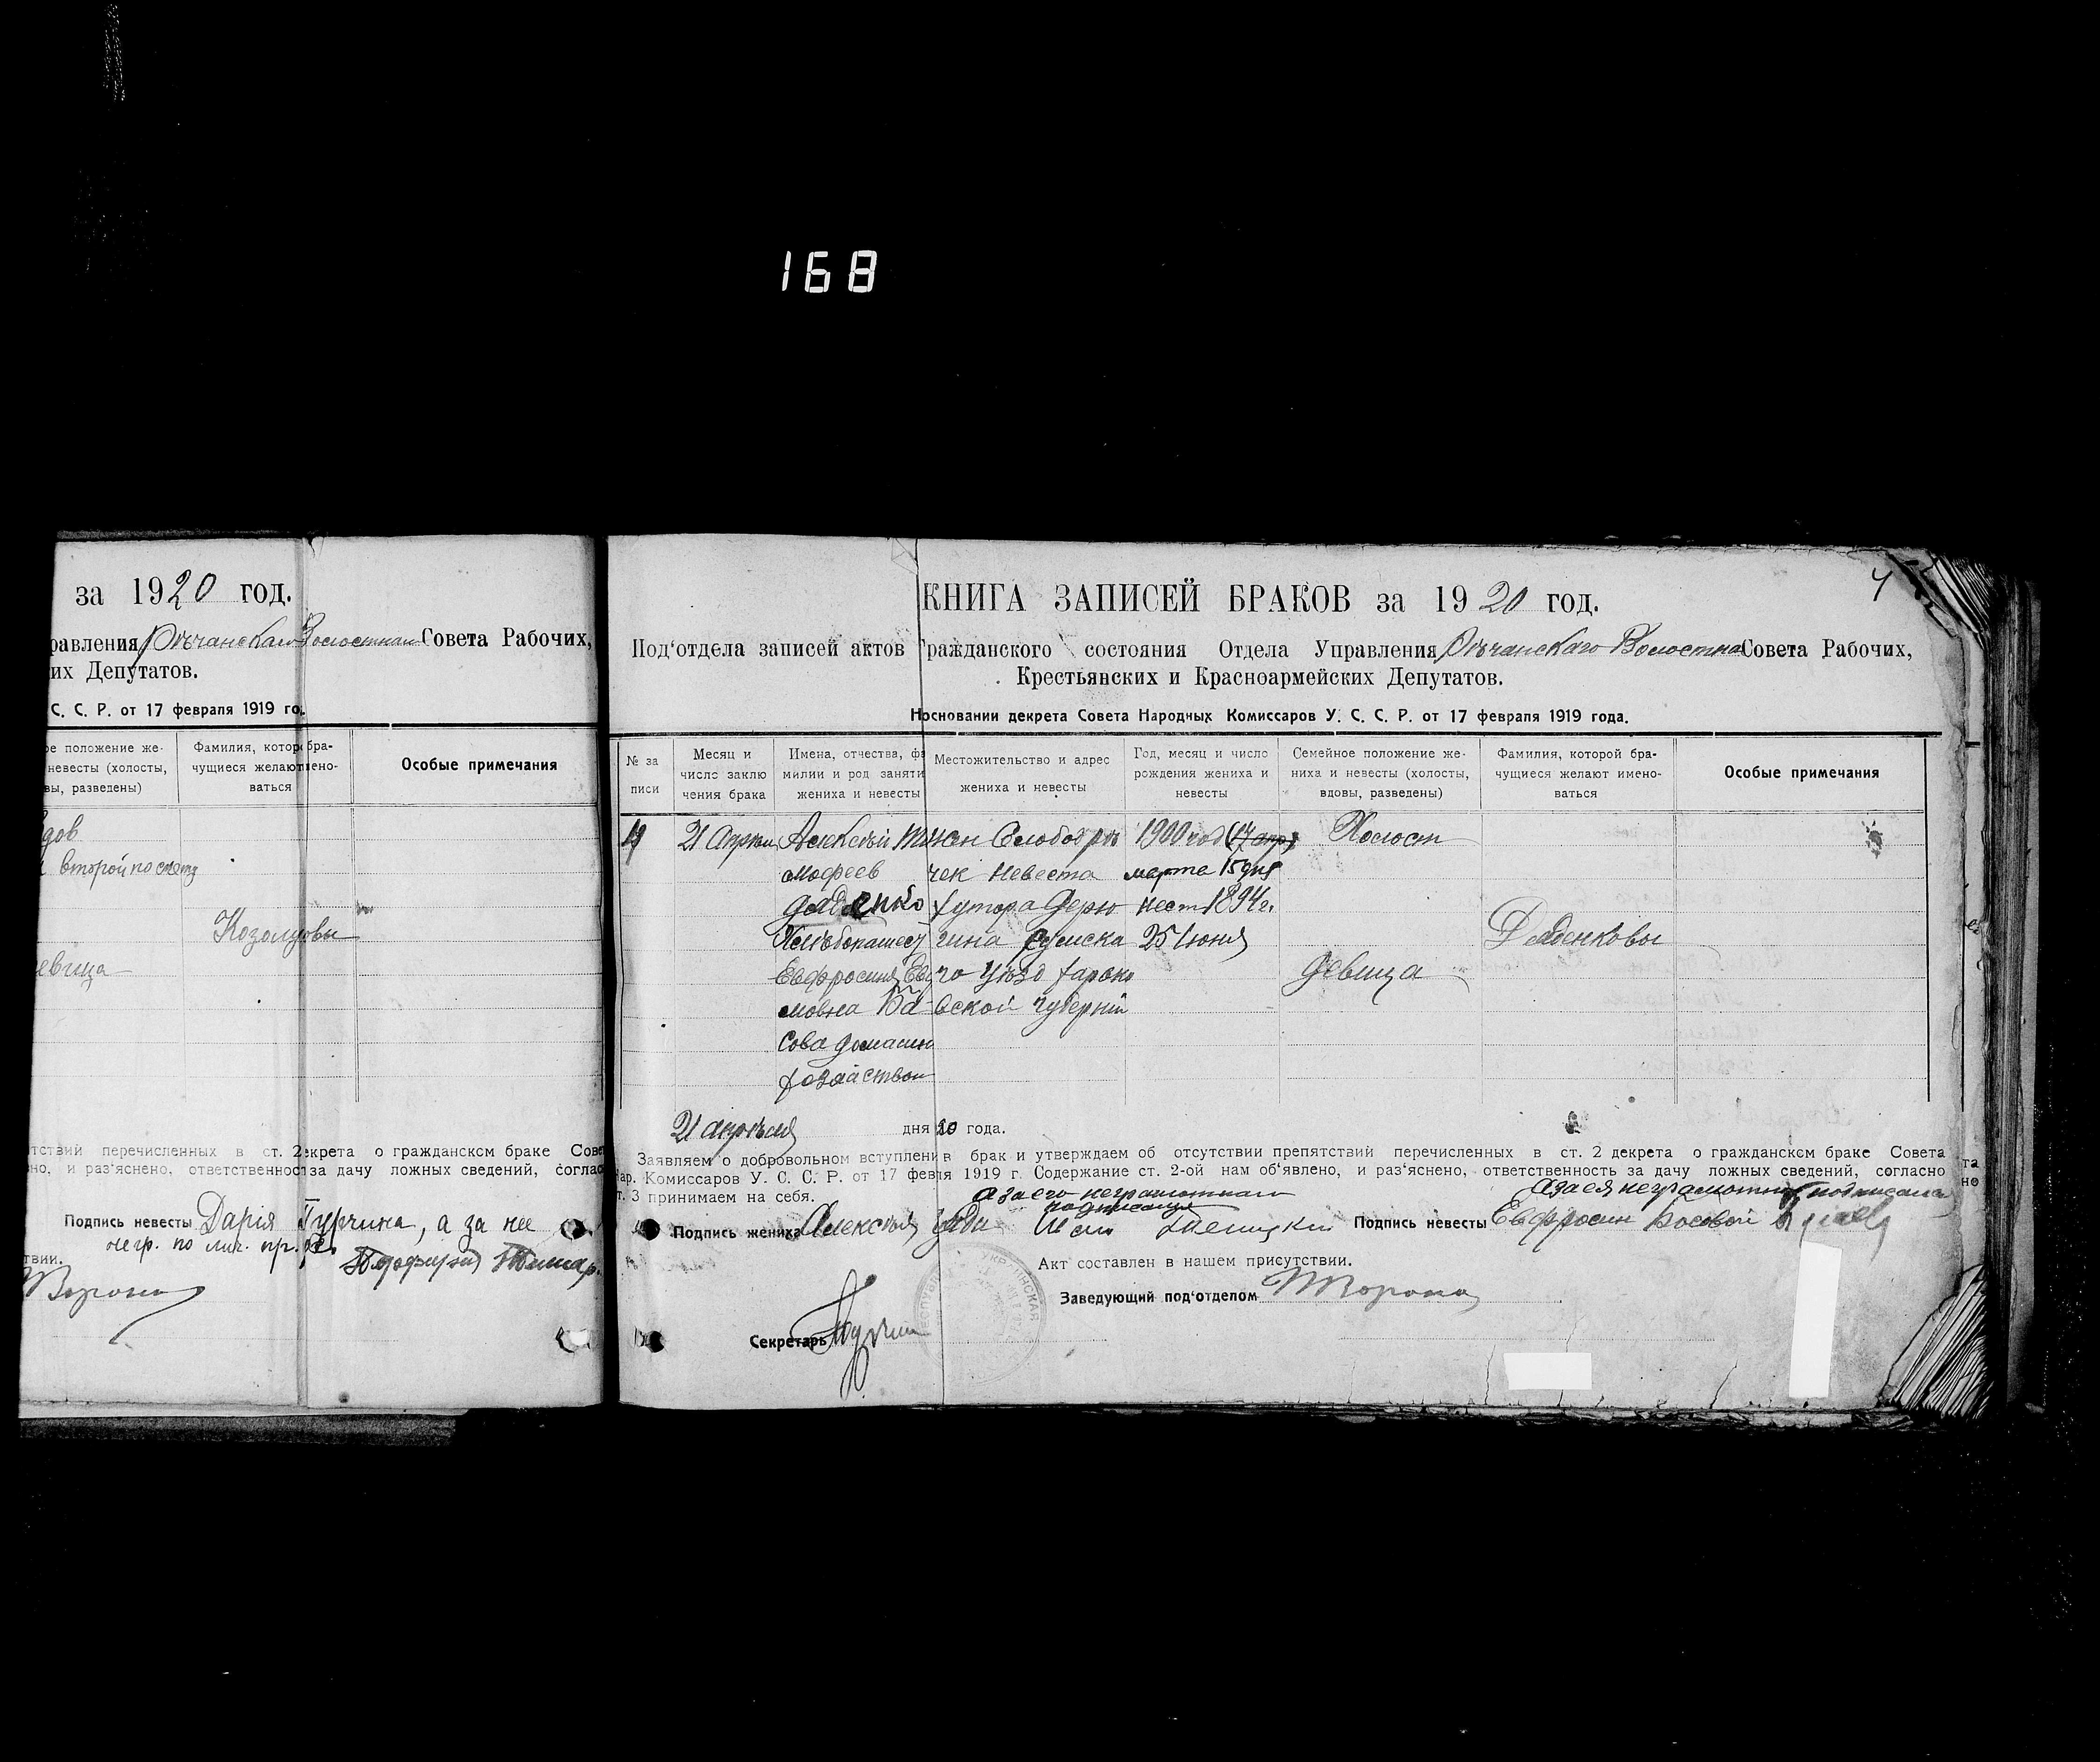 168
за 1920 год.
равления Рѣчанскаго Волостнаго Совета Рабочих,
их Депутатов.
С. С. Р. от 17 февраля 1919 го
ое положение же-
невесты (холосты,
вы, разведены)
Фамилия, которо бра-
чущиеся желают мено-
ваться
Особые примечания
дов
второй по счету
Козолуповы
евица
тствий перечисленных в ст. 2 екрета о гражданском браке Сове
но, и раз'яснено, ответственност за дачу ложных сведений, соглас
Подпись невесты Дарія Гурчина, а за нее
негр. по лич. пр.
твии.
Ворона
4
КНИГА ЗАПИСЕЙ БРАКОВ за 1920 год.
Под'отдела записей актов Гражданского состояния Отдела Управления Рѣчанскаго Волостна Совета Рабочих,
Крестьянских и Красноармейских Депутатов.
Носновании декрета Совета Народных Комиссаров У. С. С. Р. от 17 февраля 1919 года.
№ за
писи
Месяц и
число заклю
чения брака
Имена, отчества, фа
милии и род заняти
жениха и невесты
Местожительство и адрес
жениха и невесты
Год, месяц и число
рождения жениха и
невесты
Семейное положение же-
ниха и невесты (холосты,
вдовы, разведены)
Фамилия, которой бра-
чущиеся желают имено-
ваться
Особые примечания
4 21 Апрѣля Алексѣй Ти жен Слобод рѣ 1900 год (17 апр) Холост
мофеев чек невеста марта 15 дня
Дяденко хутора Дерю нест 1894 г.
Хлѣбопашец гина Сумска 25 Іюня Дяденковы
Евфросинія Евф го Уѣзд Харько девица
мовна Ба- вской губерніи
сова домашн
хозяйством
21 апрѣля дня 20 года.
Заявляем о добровольном вступлении в брак и утверждаем об отсутствии препятствий перечисленных в ст. 2 декрета о гражданском браке Совета
Нар. Комиссаров У. С. С. Р. от 17 февля 1919 г. Содержание ст. 2-ой нам об'явлено, и раз'яснено, ответственность за дачу ложных сведений, согласно
т. 3 принимаем на себя.
а за его неграмотнаго
подписался
а за ея неграмотную подписался
Подпись жениха Алексѣя Подпись невесты Евфросин Босовой
Акт составлен в нашем присутствии.
Заведующий под'отделом Ворона
Секретарь